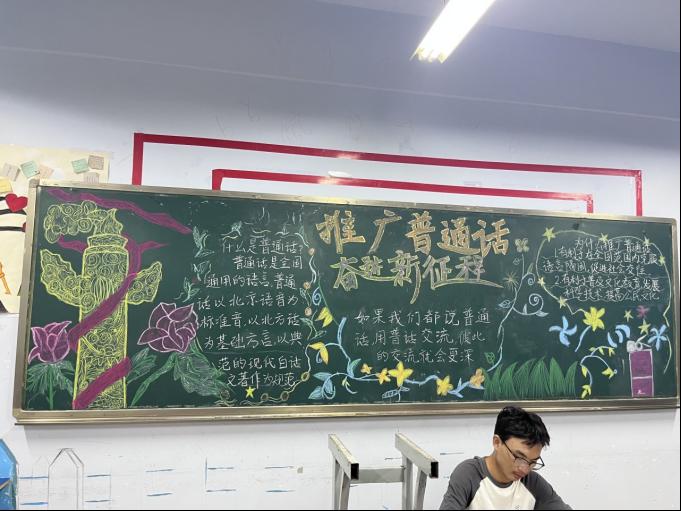 推广普通话
奋进新征程
什么是普通话?
普通话是全国
通用的语言,普通
话以北京语音为
标准音,以北方话
为基础方言,以典
范的现代白话
文著作为规范
如果我们都说普通
话,用普话交流,彼此
的交流就会更深
为什么推广普通话
1.有利于在全国范围内发展
语言隔阂,促进社会交往
2.有利于普及文化教育,发展
科学技术,提高公民文化